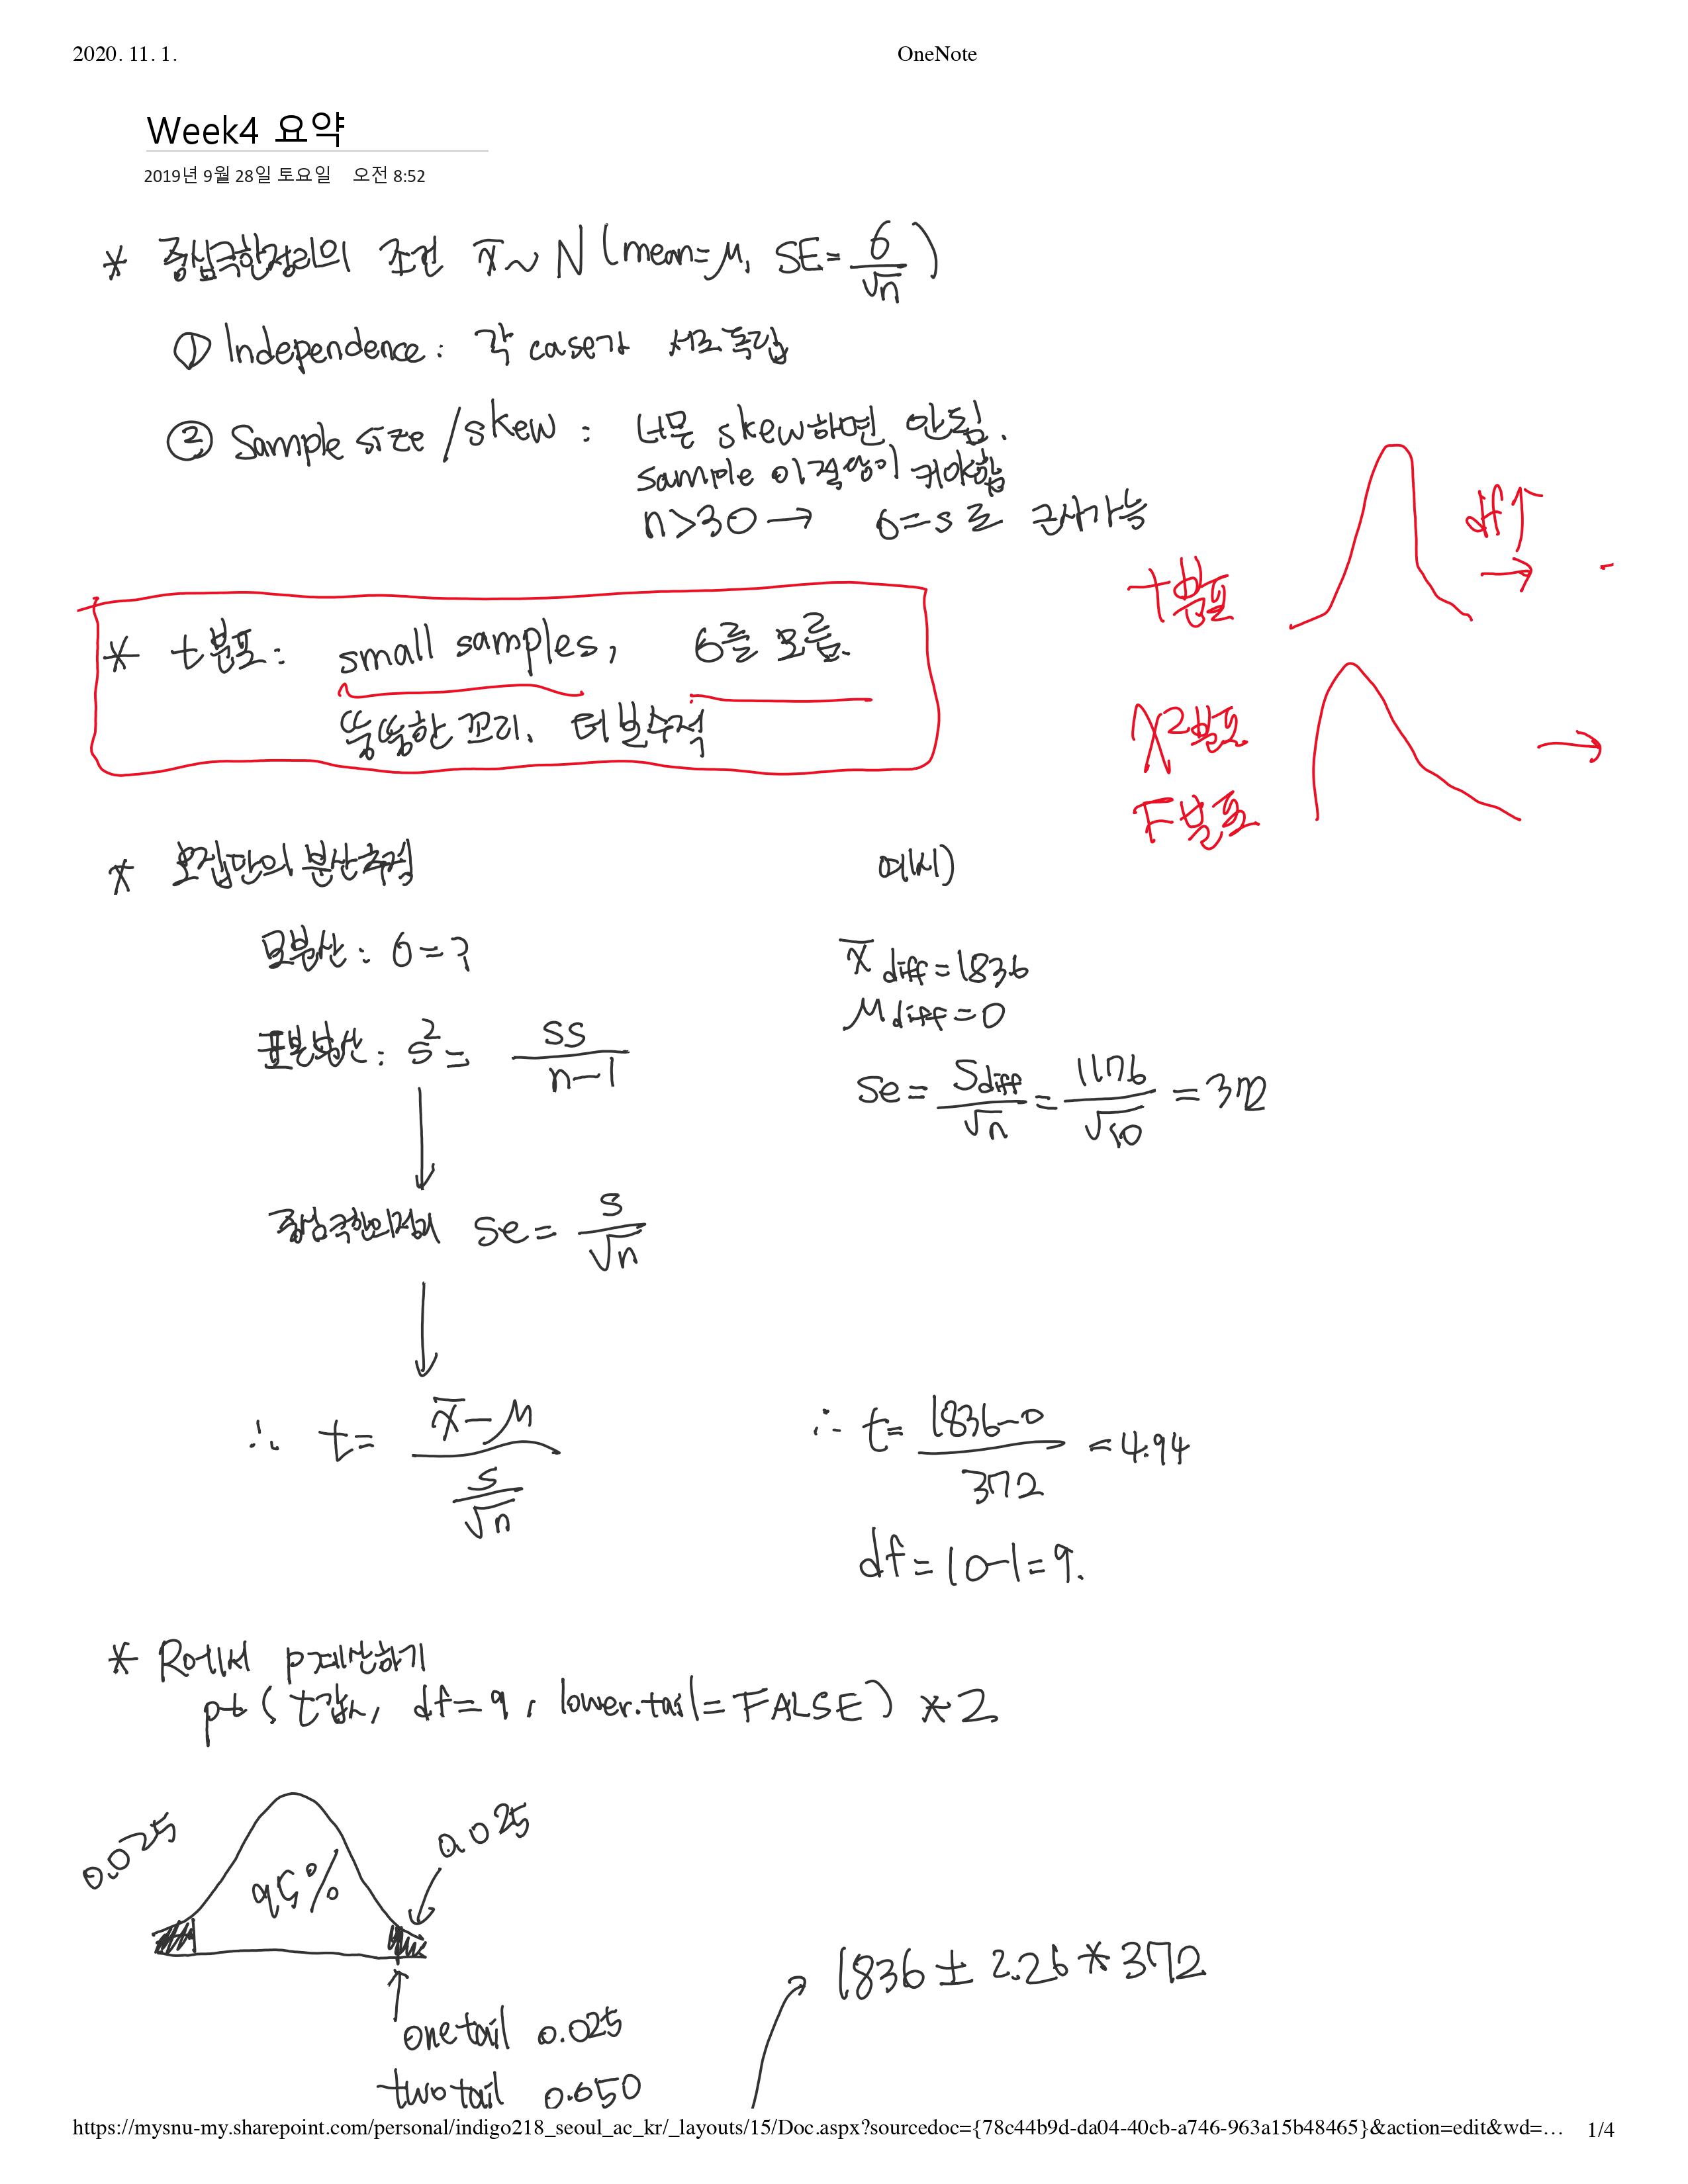 2020. 11. 1.
OneNote
Week4 요약
2019년 9월 28일 토요일 오전 8:52
* 중심극한정리의 조건 x̄ ~ N (mean=μ, SE= σ/√n )
① Independence : 각 case가 서로 독립
② Sample size / skew : 너무 skew하면 안됨.
sample 이 굉장히 커야함
n>30 → σ=s 로 근사가능
* t분포 : small samples, σ를 모름.
뚱뚱한 꼬리. 더 보수적
t분포
df↑
→
χ²분포
→
F분포
* 모집단의 분산추정
모분산 : σ=?
표본분산 : s² = SS/(n-1)
↓
중심극한의정리 se = s/√n
↓
∴ t = (x̄-μ)/(s/√n)
예시)
x̄ diff = 1836
μ diff = 0
se = Sdiff/√n = 1176/√10 = 372
∴ t = (1836-0)/372 = 4.94
df = 10-1 = 9.
* R에서 p계산하기
pt ( t값, df=9, lower.tail=FALSE ) *2
0.025
95%
0.025
one tail 0.025
two tail 0.050
1836 ± 2.26 * 372
https://mysnu-my.sharepoint.com/personal/indigo218_seoul_ac_kr/_layouts/15/Doc.aspx?sourcedoc={78c44b9d-da04-40cb-a746-963a15b48465}&action=edit&wd=…
1/4